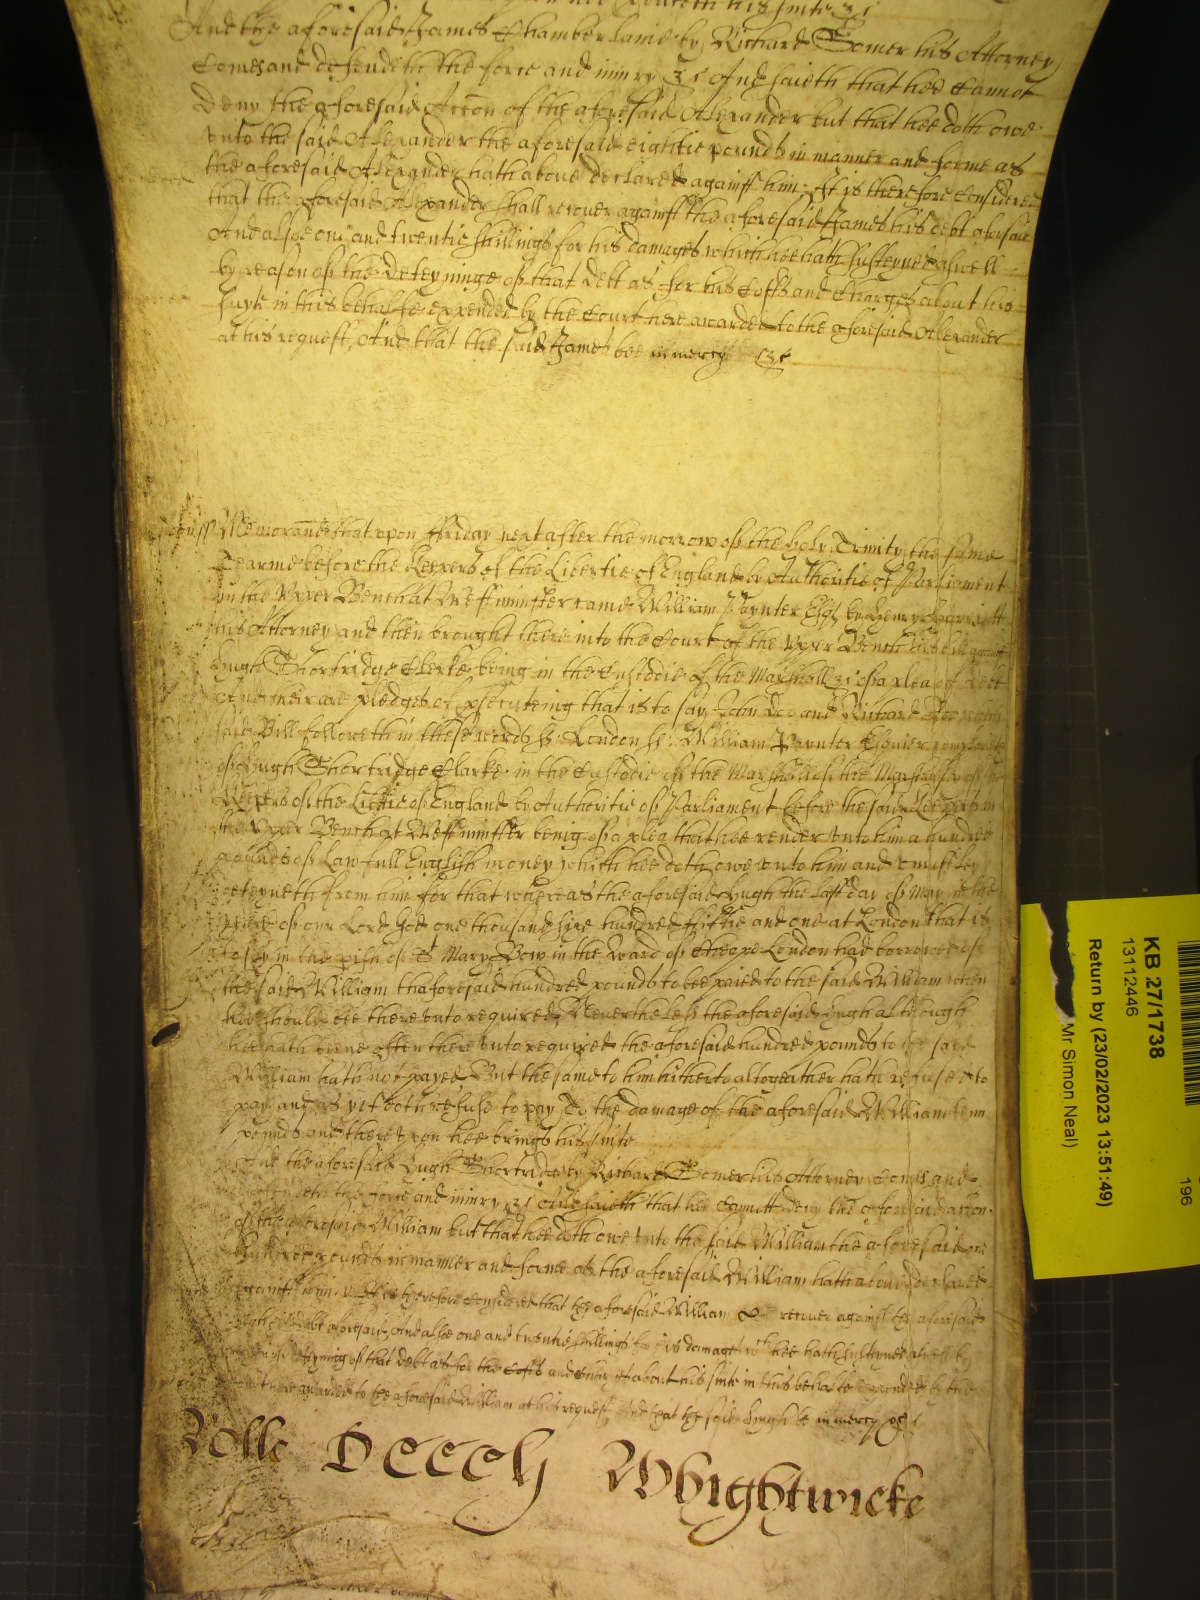 his suite &c
And the aforesaid James Chamberlaine by Richard Somer his Attorney
Comes and defendeth the force and iniury &c And saieth that hee Cannot
Deny the aforesaid Accon of the aforesaid Alexander but that hee doth owe
vnto the said Alexander the aforesaid eightie pounds in manner and forme as
the aforesaid Alexander hath aboue declared against him. It is therefore Considered
that the aforesaid Alexander shall recouer against the aforesaid James his debt aforesaid
And alsoe one and twentie shillings for his damages which hee hath susteyned aswell
by reason of the deteyninge of that debt as for his Costs and Charges about his
suyte in this behalfe expended by the Court here awarded to the aforesaid Alexander
at his request, And that the said James bee in mercy &c
Memorand that vpon ffriday next after the morrow of the holy Trinity the same
Tearme before the Keepers of the Libertie of England by Authoritie of Parliament
in the Vpper Bench at Westminster came William Paynter Esqr by Henry
his Attorney and then brought there into the Court of the Vpper Bench his bill against
Hugh Shortridge Clerke being in the Custodie of the Marshall &c of a plea of debt
And there are pledges of psecuteing that is to say John Doo and Richard Roo which
said Bill followeth in these words ss London ss. William Paynter Esquier complaines
of Hugh Shortridge Clarke in the Custodie of the Marshall of the Marshalsea of the
Keepers of the Libtie of England by Authoritie of Parliament before the said Keepers in
the Vpper Bench at Westminster being of a plea that hee render vnto him a hundred
pounds of Lawfull English money which hee doth owe vnto him and vniustley
deteyneth from him for that whereas the aforesaid Hugh the last day of May in the
yeare of our Lord God one thousand six hundred ffiftie and one at London that is
to say in the pish of St Mary Bow in the Ward of Cheape London had borrowed of
the said William thaforesaid hundred pounds to bee paied to the said William when
hee should bee there vnto required, Neuertheless the aforesaid Hugh although
hee hath beene often there vnto required the aforesaid hundred pounds to the said
William hath not payed, But the same to him hitherto altogeather hath refused to
pay and as yet doth refuse to pay To the damage of the aforesaid William tenn
pounds and there vpon hee brings his suite
And the aforesaid Hugh Shortridge by Richard Somer his Attorney Comes and
defendeth the force and iniury &c And saieth that hee Cannott deny the aforesaid accon
of the aforesaid William but that hee doth owe vnto the said William the aforesaid one
hundred pounds in manner and forme as the aforesaid William hath aboue declared
against him. It is therefore Considered that the aforesaid William recouer against the aforesaid
Hugh his debt aforesaid, And alsoe one and twentie shillings for his damages wch hee hath susteyned aswell by
reason of deteyning of that debt as for the Costs and Charges about his suite in this behalfe expended by the
Court here awarded to the aforesaid William at his request And that the said Hugh be in mercy &c
Rolle Beech Whightwicke
KB 27/1738
13112446
Return by (23/02/2023 13:51:49)
Mr Simon Neal)
196